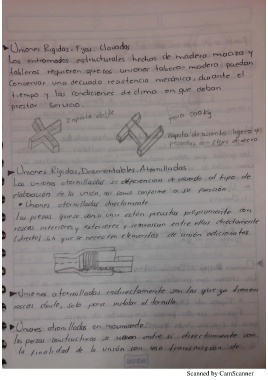 Uniones Rigidas, Fijas, Clavadas
Los entramados estructurales hechos de madera maciza y
tableros requieren que las uniones tablero madera puedan
Conservar una decuada resistencia mecánica, durante el
tiempo y las condiciones de clima en que deban
prestar Servicio.
zapata doble
Uniones Rigidas, Desmontables, Atornilladas
Las uniones atornilladas se diferencian de acuerdo al tipo de
elaboración de la unión, así como conforme a su función.
• Uniones atornilladas directamente
Las piezas que se van a unir están provistas propiamente con
roscas interiores y exteriores y se enroscan entre ellas directamente
(directo) sin que se necesiten elementos de unión adicionales.
Uniones atornilladas indirectamente son las que ya tienen
rosca donde, solo para instalar el tornillo.
Uniones atornilladas en movimiento:
las piezas constructivas se unen entre si directamente con
la finalidad de la unión con una transmisión de
Scanned by CamScanner